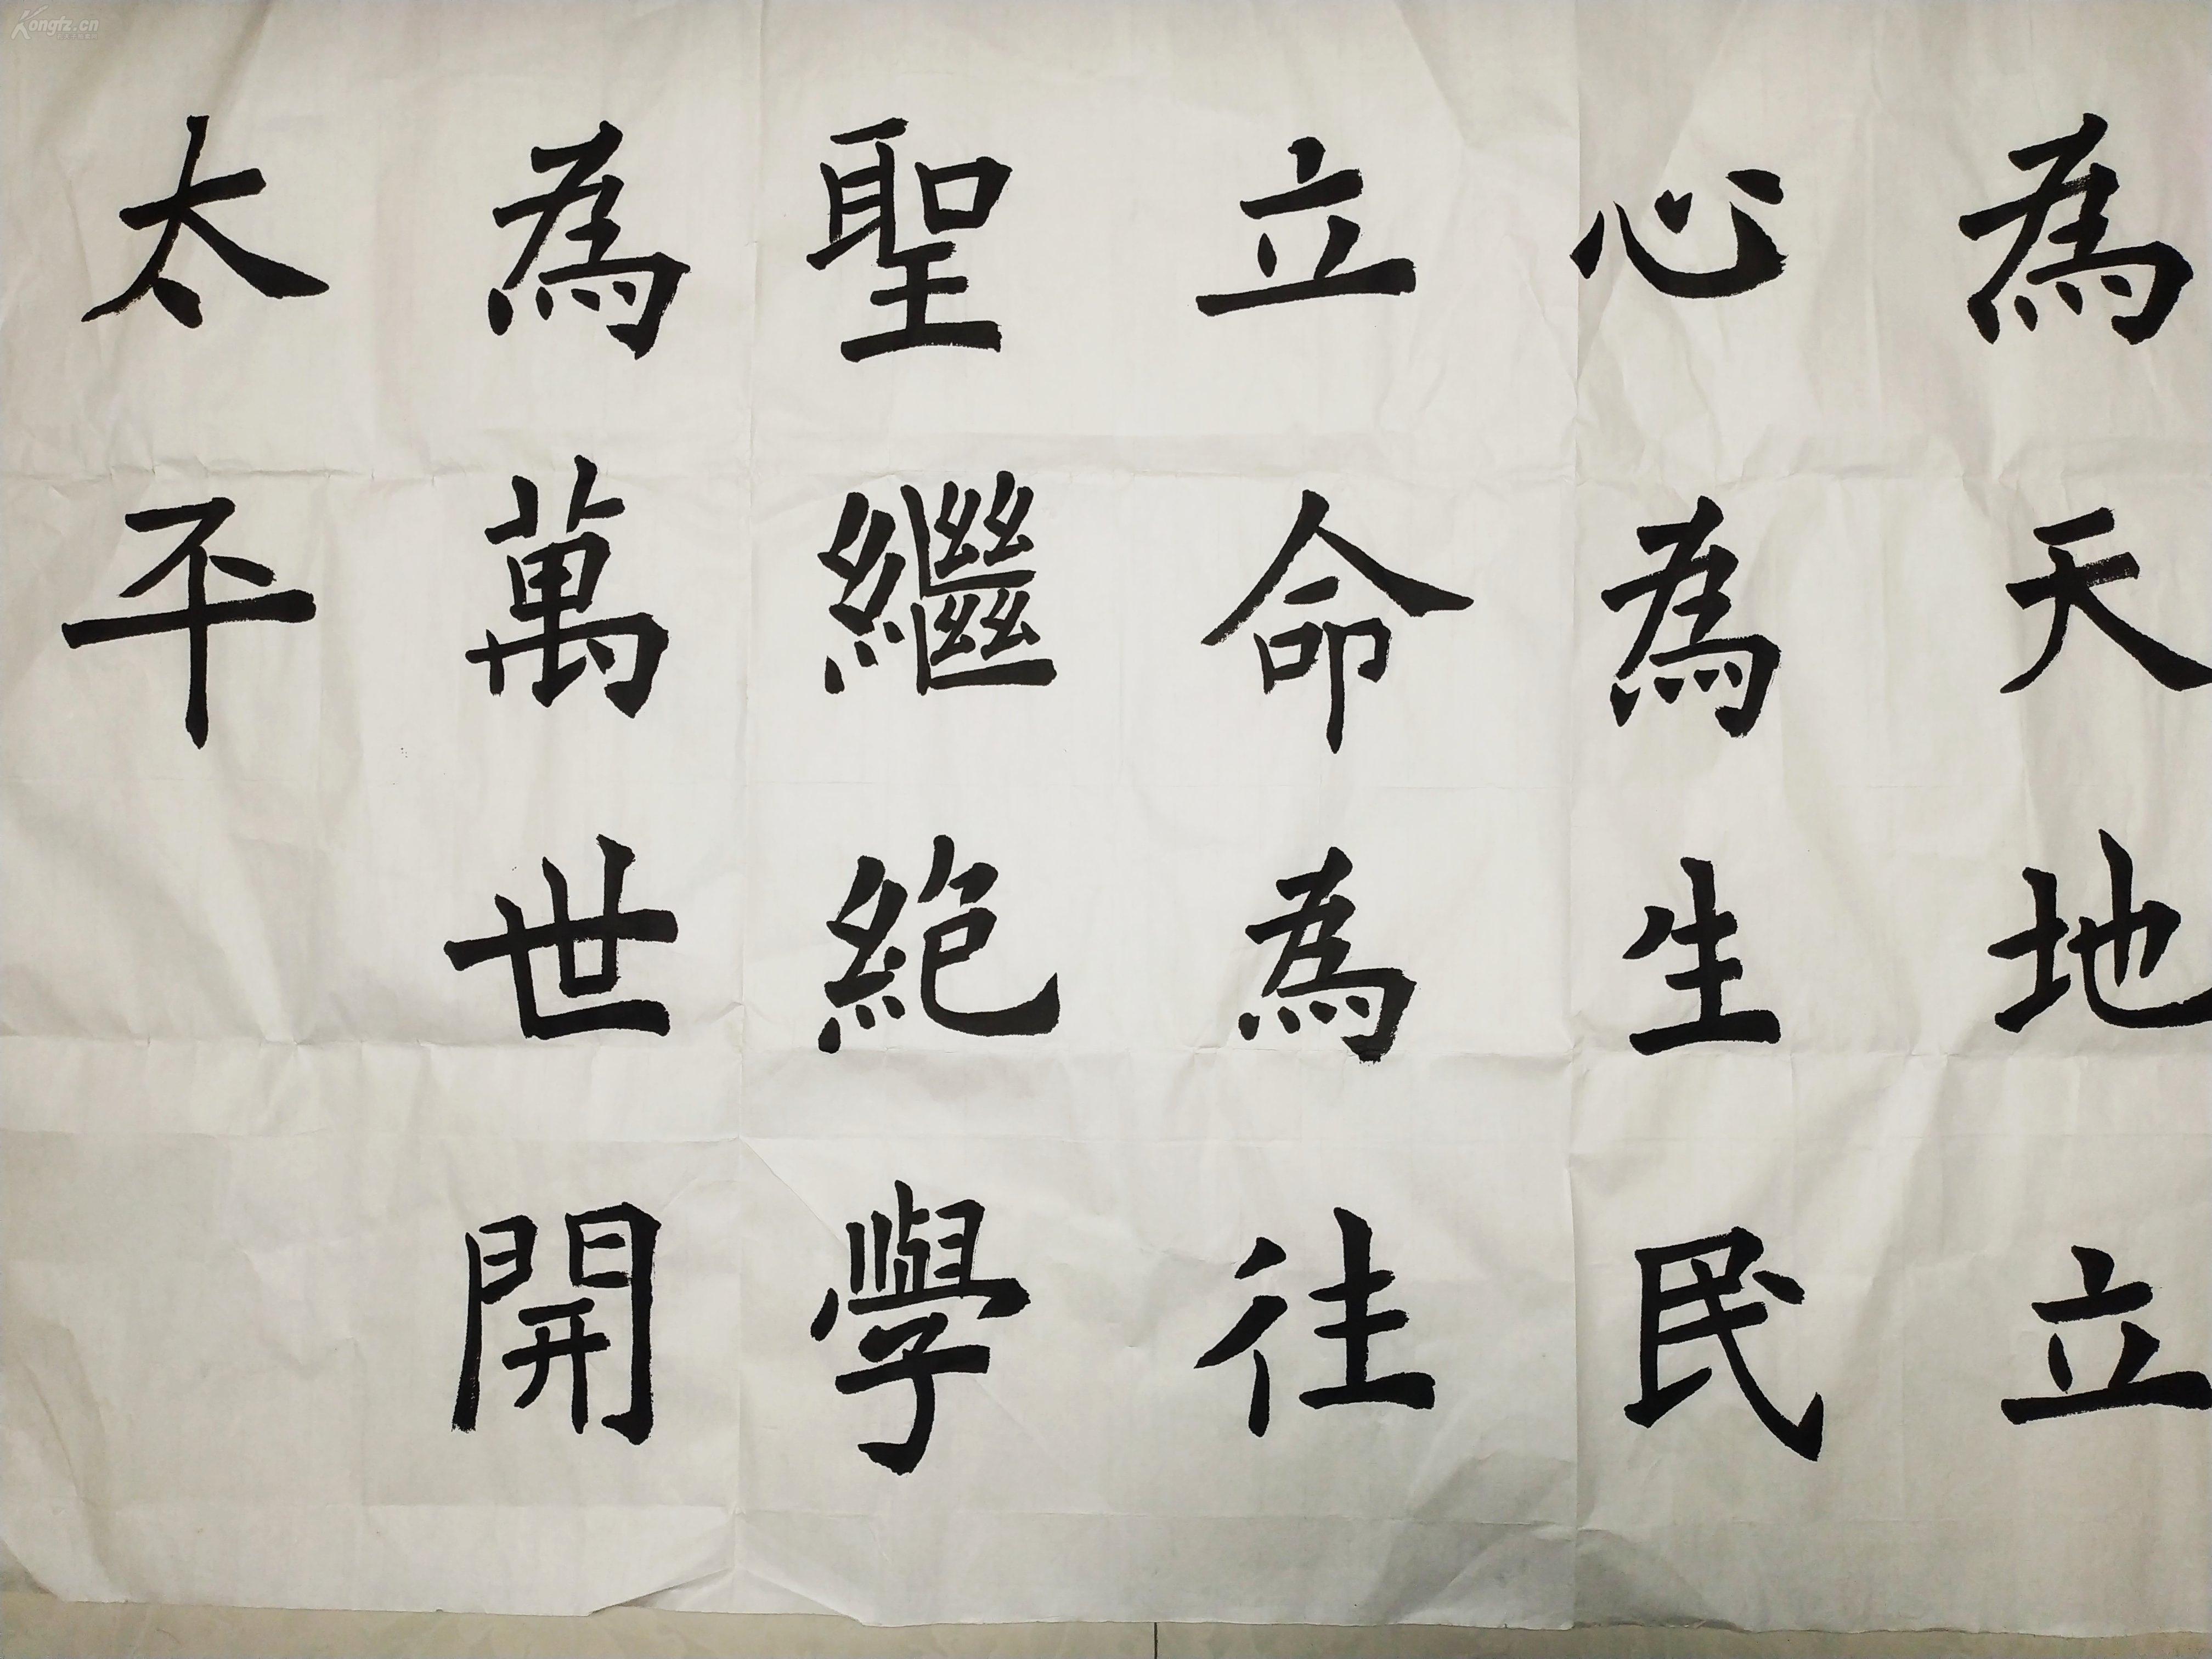 為天地立
心為生民
立命為往
聖繼絕學
為萬世開
太平
Kongfz.cn